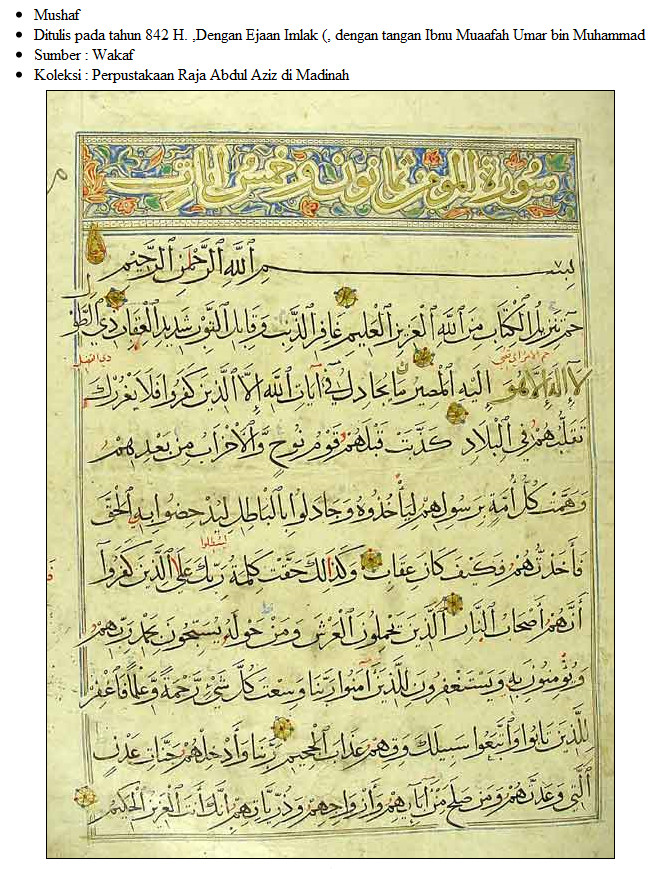 Mushaf
Ditulis pada tahun 842 H. ,Dengan Ejaan Imlak (, dengan tangan Ibnu Muaafah Umar bin Muhammad
Sumber : Wakaf
Koleksi : Perpustakaan Raja Abdul Aziz di Madinah
سورة المومن ثمانون وخمس ايات
بسم الله الرحمن الرحيم
حم تنزيل الكتاب من الله العزيز العليم غافر الذنب وقابل التوب شديد العقاب ذي الطول
لا إله إلا هو إليه المصير ما يجادل في آيات الله إلا الذين كفروا فلا يغررك
تقلبهم في البلاد كذبت قبلهم قوم نوح والأحزاب من بعدهم
وهمت كل أمة برسولهم ليأخذوه وجادلوا بالباطل ليدحضوا به الحق
فأخذتهم فكيف كان عقاب وكذلك حقت كلمة ربك على الذين كفروا
أنهم أصحاب النار الذين يحملون العرش ومن حوله يسبحون بحمد ربهم
ويؤمنون به ويستغفرون للذين آمنوا ربنا وسعت كل شيء رحمة وعلما فاغفر
للذين تابوا واتبعوا سبيلك وقهم عذاب الجحيم ربنا وأدخلهم جنات عدن
التي وعدتهم ومن صلح من آبائهم وأزواجهم وذرياتهم إنك أنت العزيز الحكيم